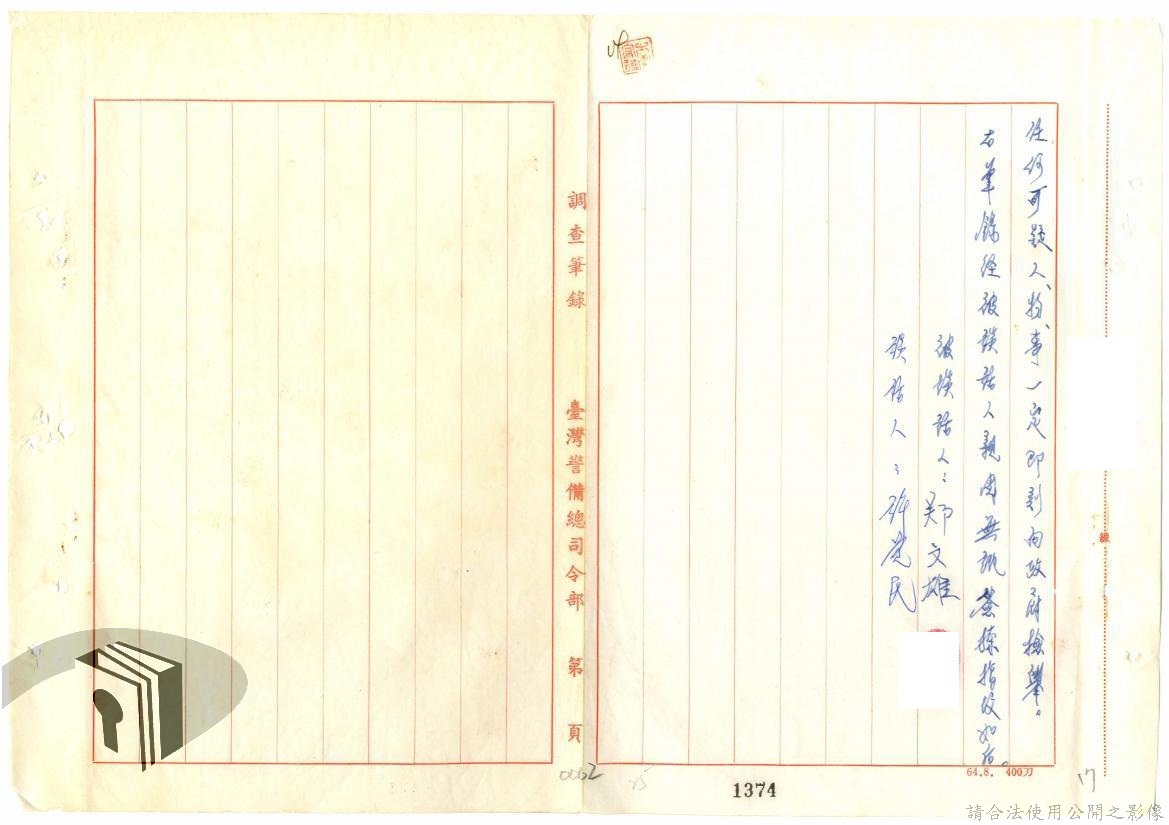 任何可疑人、物、事一定即刻向政府檢舉。
右筆錄經被談話人親閱無訛簽捺指紋如右。
被談話人：鄭文雄
談話人：許覺民
線
64.8. 400刀
調查筆錄 臺灣警備總司令部 第 頁
0062
25
1374
17
請合法使用公開之影像